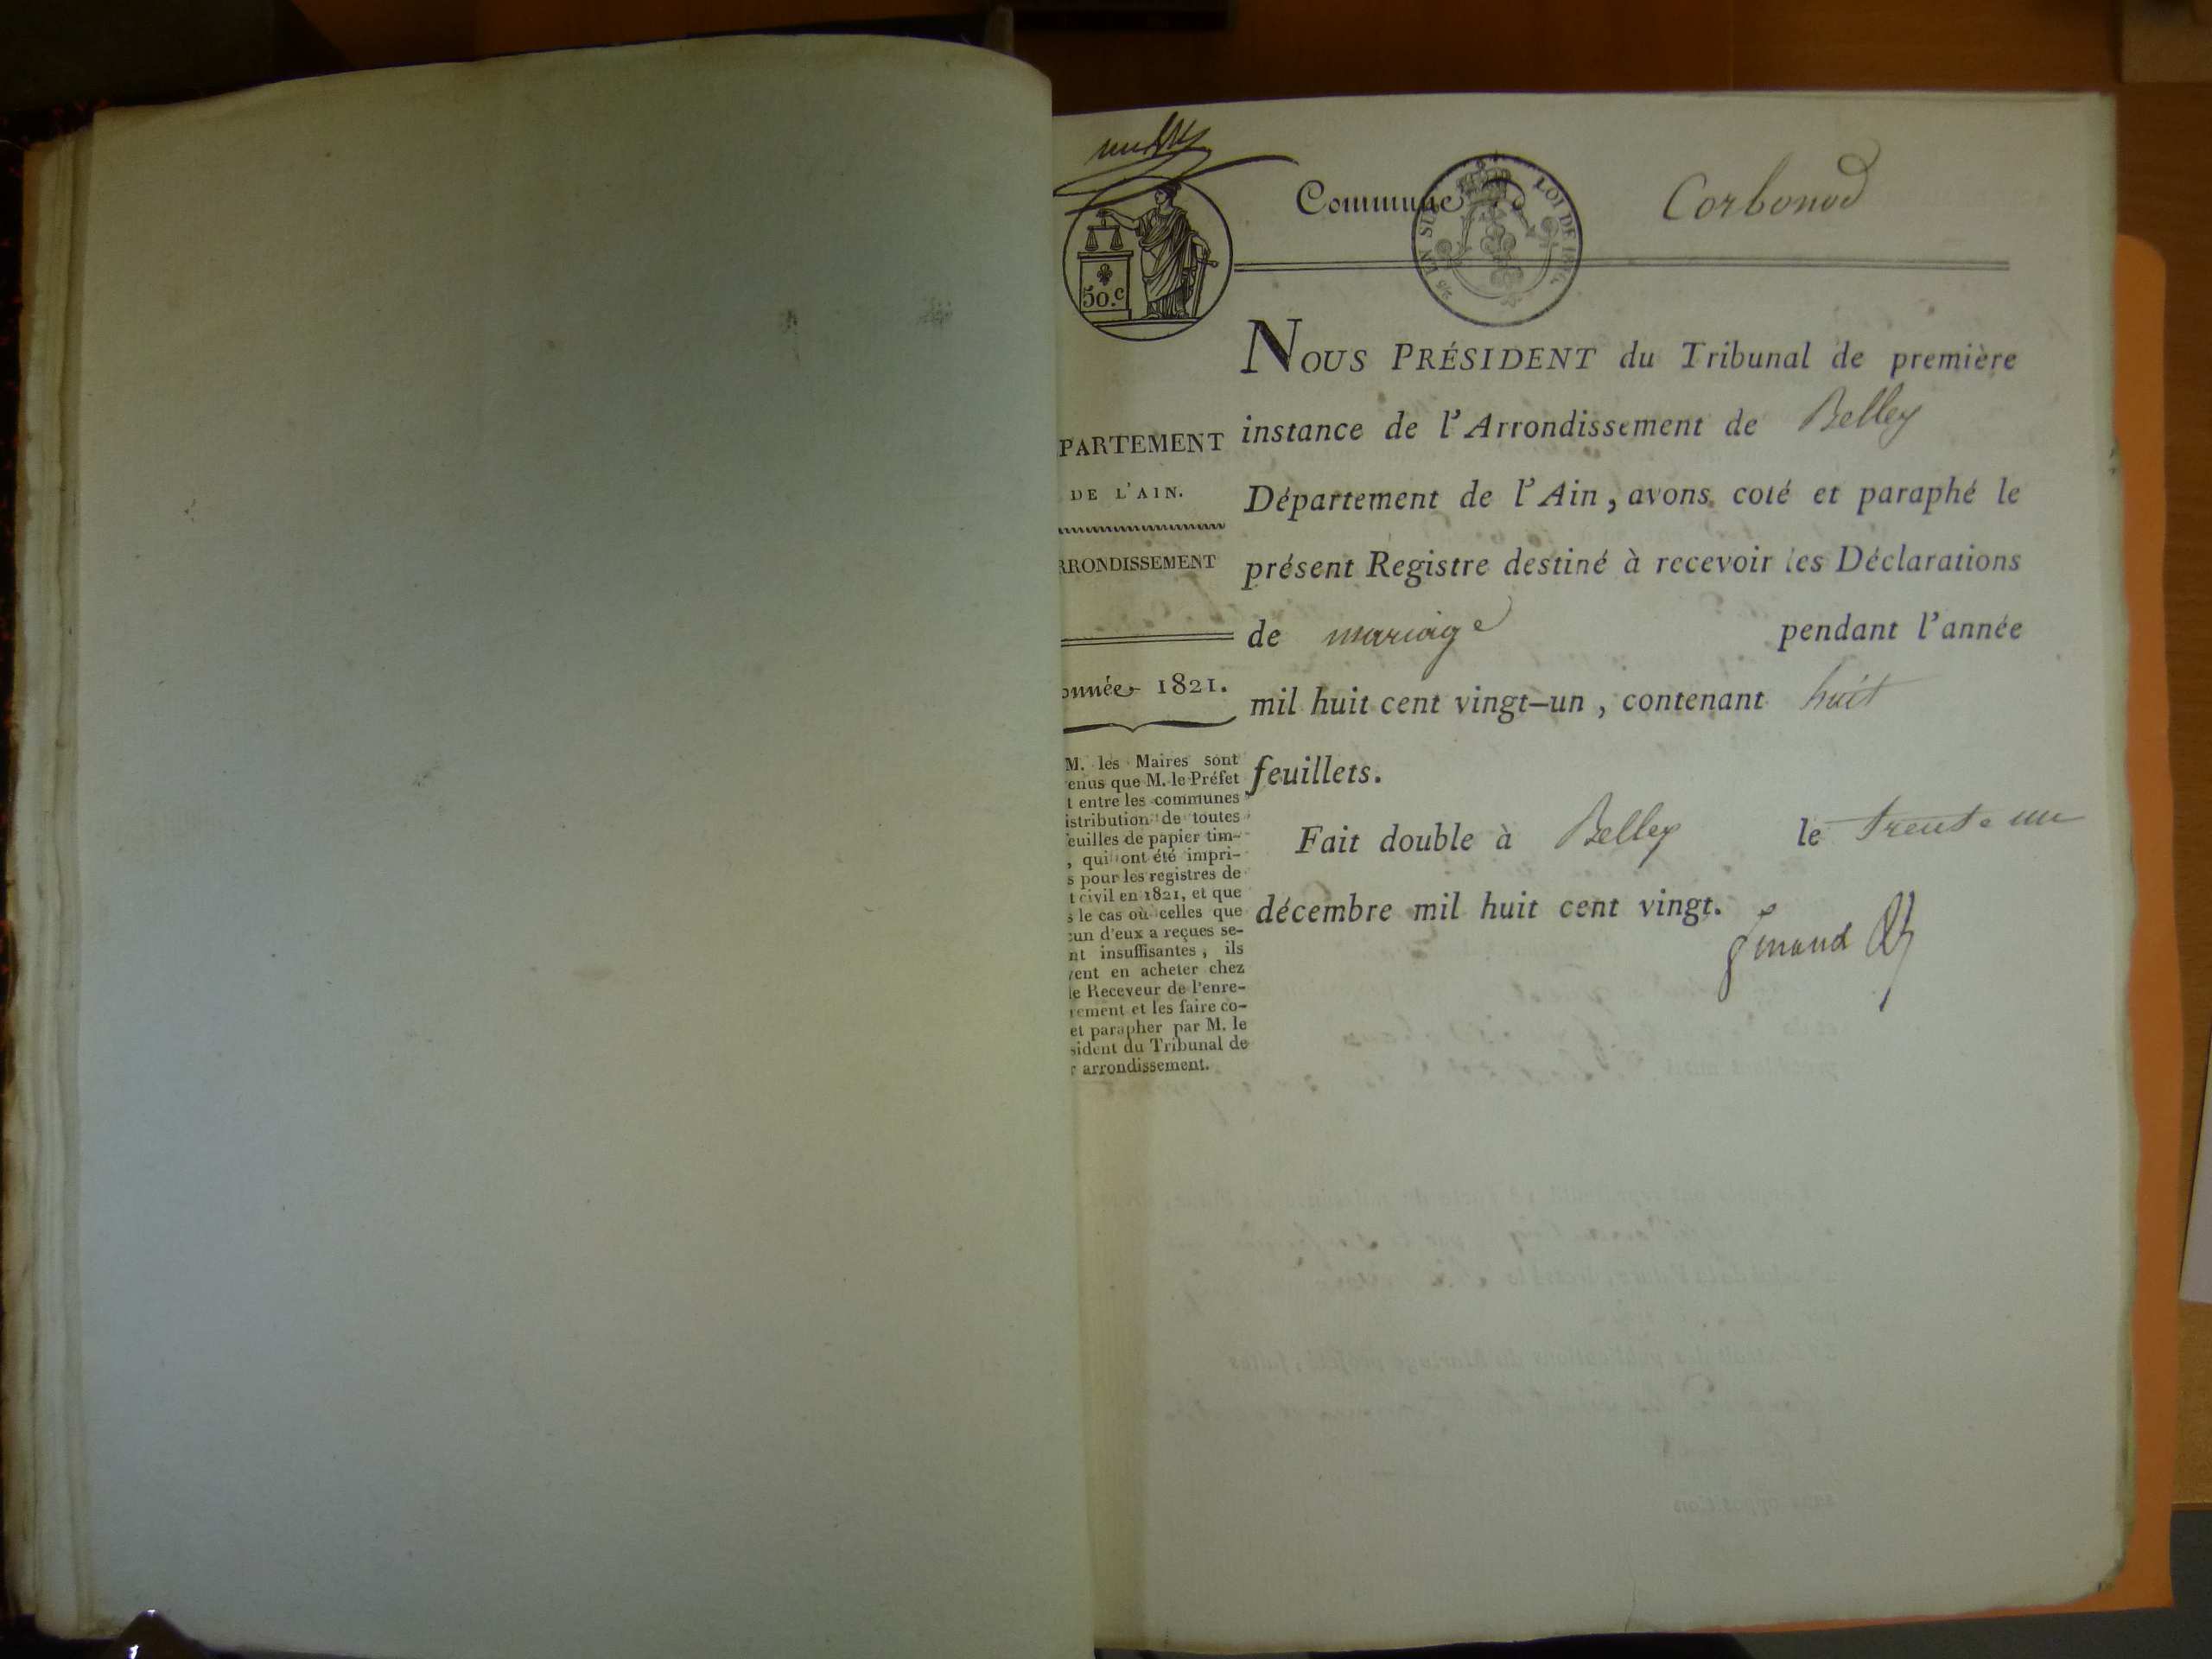 Commune d Corbonod
50.c
LOI DE
EN SUS
NOUS PRÉSIDENT du Tribunal de première
instance de l'Arrondissement de Belley
Département de l'Ain, avons coté et paraphé le
présent Registre destiné à recevoir les Déclarations
de mariage pendant l'année
mil huit cent vingt-un, contenant huit
feuillets.
Fait double à Belley le trente un
décembre mil huit cent vingt.
PARTEMENT
DE L'AIN.
RRONDISSEMENT
nnée 1821.
M. les Maires sont
enus que M. le Préfet
t entre les communes
istribution de toutes
euilles de papier tim-
, qui ont été impri-
s pour les registres de
t civil en 1821, et que
s le cas où celles que
un d'eux a reçues se-
nt insuffisantes, ils
vent en acheter chez
le Receveur de l'enre-
rement et les faire co-
et parapher par M. le
sident du Tribunal de
r arrondissement.